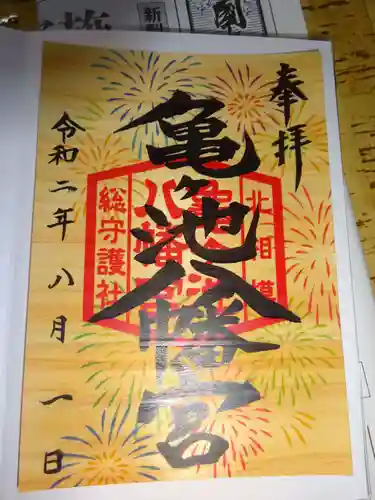 奉拝
亀ヶ池八幡宮
北相模
総守護社
令和二年八月一日